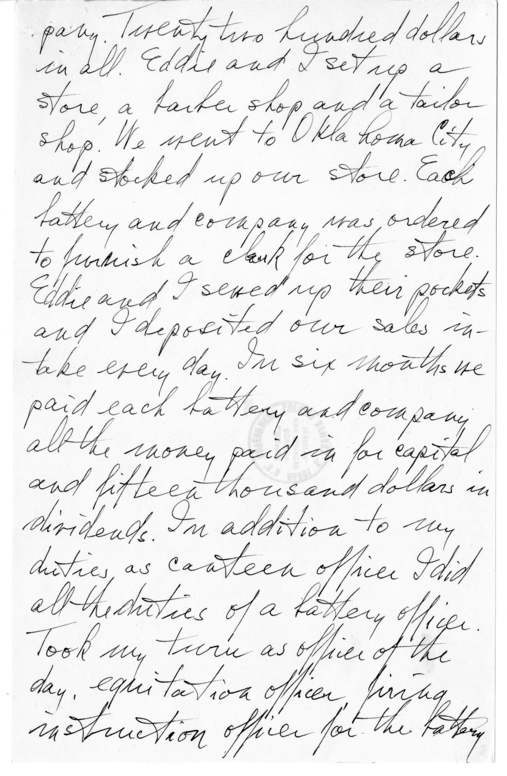 pany. Twenty two hundred dollars
in all. Eddie and I set up a
store, a barber shop and a tailor
shop. We went to Oklahoma City
and stocked up our store. Each
battery and company was ordered
to furnish a clerk for the store.
Eddie and I sewed up their pockets
and I deposited our sales in-
take every day. In six months we
paid each battery and company
all the money paid in for capital
and fifteen thousand dollars in
dividends. In addition to my
duties as canteen officer I did
all the duties of a battery officer.
Took my turn as officer of the
day, equitation officer, firing
instruction officer for the battery